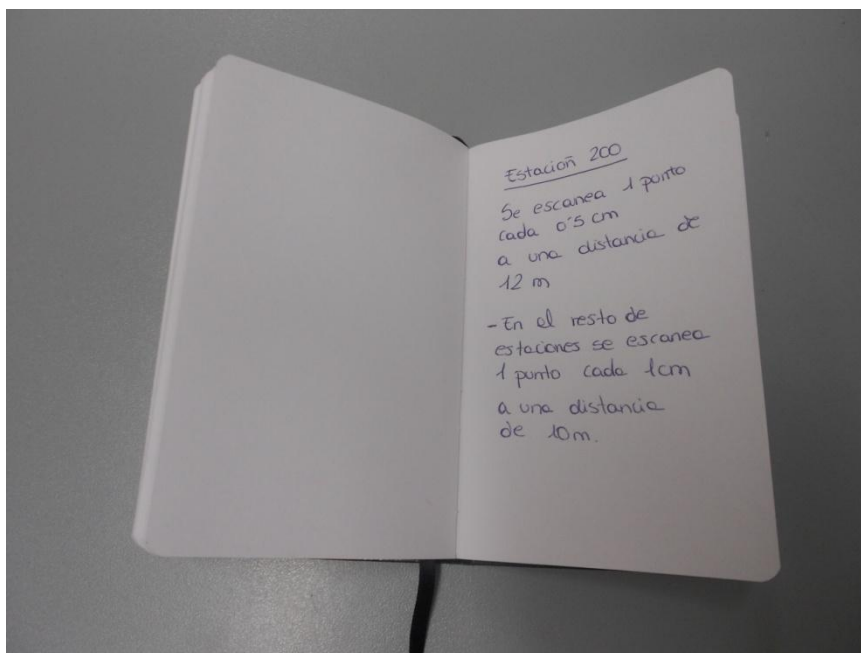 Estación 200
Se escanea 1 punto
cada 0'5 cm
a una distancia de
12 m
- En el resto de
estaciones se escanea
1 punto cada 1cm
a una distancia
de 10m.